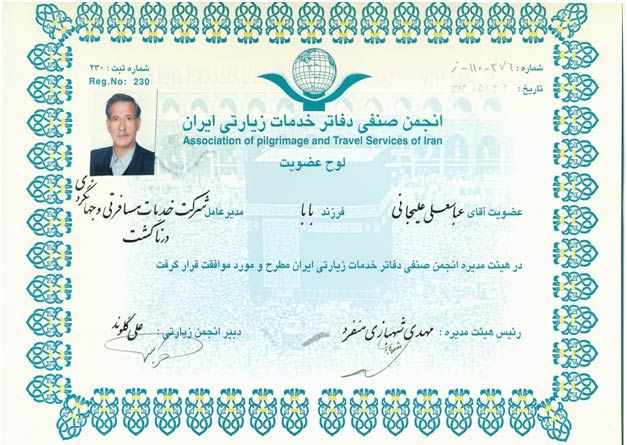 شماره ثبت : ۲۳۰
Reg.No: 230
شماره : ۱۱۰-۳۷۶-ز
تاریخ :
انجمن صنفی دفاتر خدمات زیارتی ایران
Association of pilgrimage and Travel Services of Iran
لوح عضویت
عضویت آقای عباسعلی علیجانی فرزند بابا مدیرعامل شرکت خدمات مسافرتی و جهانگردی
درناگشت
در هیئت مدیره انجمن صنفی دفاتر خدمات زیارتی ایران مطرح و مورد موافقت قرار گرفت
رئیس هیئت مدیره : مهدی شهبازی منفرد دبیر انجمن زیارتی : علی گلوند